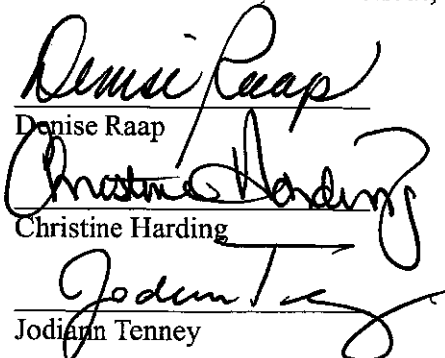 Denise Raap
Denise Raap
Christine Harding
Christine Harding
Jodiann Tenney